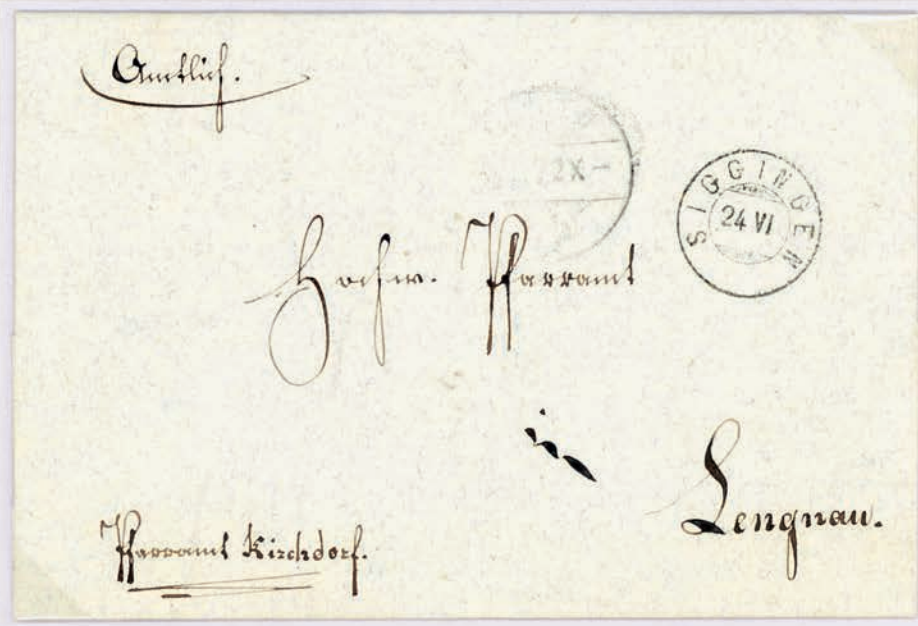 Amtlich.
2X-
SIGGINGEN
24 VI
Hochw. Pfarramt
in
Lengnau.
Pfarramt Kirchdorf.